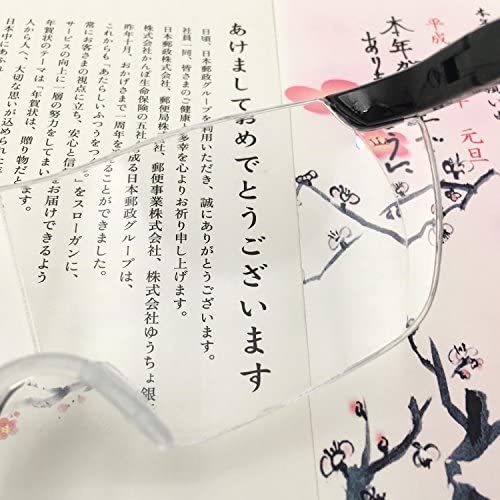 平成
元旦
本年が
うに
あり
あけましておめでとうございます
日頃、日本郵政グループを利用いただき、誠にありがとうございます。
社員一同、皆さまのご健康と幸を心よりお祈り申し上げます。
日本郵政株式会社、郵便局株式会社、郵便事業株式会社、株式会社ゆうちょ銀
株式会社かんぽ生命保険の五社成る日本郵政グループは、
昨年十月、おかげさまで一周年をることができました。
これからも「あたらしいふつうをつ」をスローガンに、
常にお客さまの視点に立ち、安心と信お届けできるよう
サービスの向上に一層の努力をしてまい
年賀状のテーマは「年賀状は、贈り物だと
人から人へ、大切な思いが込められた
日本中にあふれ